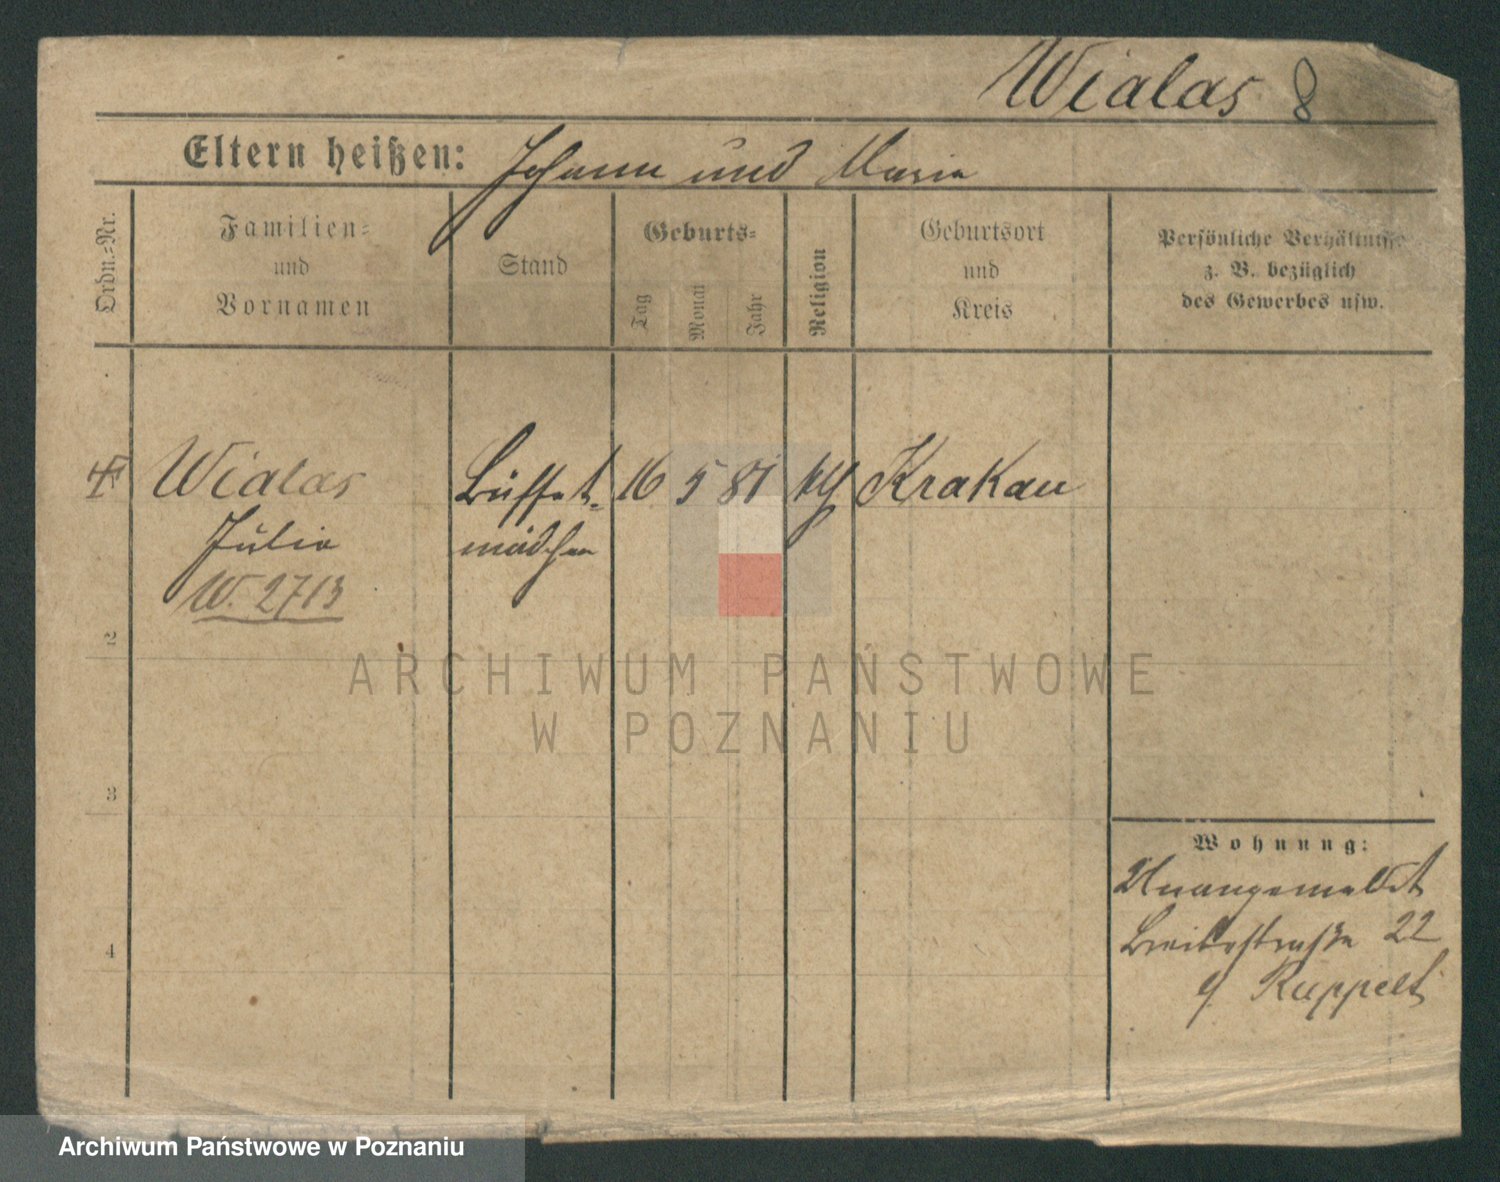 Wialas 8
Eltern heißen: Johann und Maria
Ordn.-Nr.
Familien-
und
Vornamen
Stand
Geburts-
Tag
Monat
Jahr
Religion
Geburtsort
und
Kreis
Persönliche Verhältnisse
z. B. bezüglich
des Gewerbes usw.
Wialas Büffet- 16 5 81 Krakau
Julia mädchen
W. 2713
2
3
4
Wohnung:
Unangemeldet
Breitestraße 22
Ruppelt
ARCHIWUM PAŃSTWOWE
W POZNANIU
Archiwum Państwowe w Poznaniu